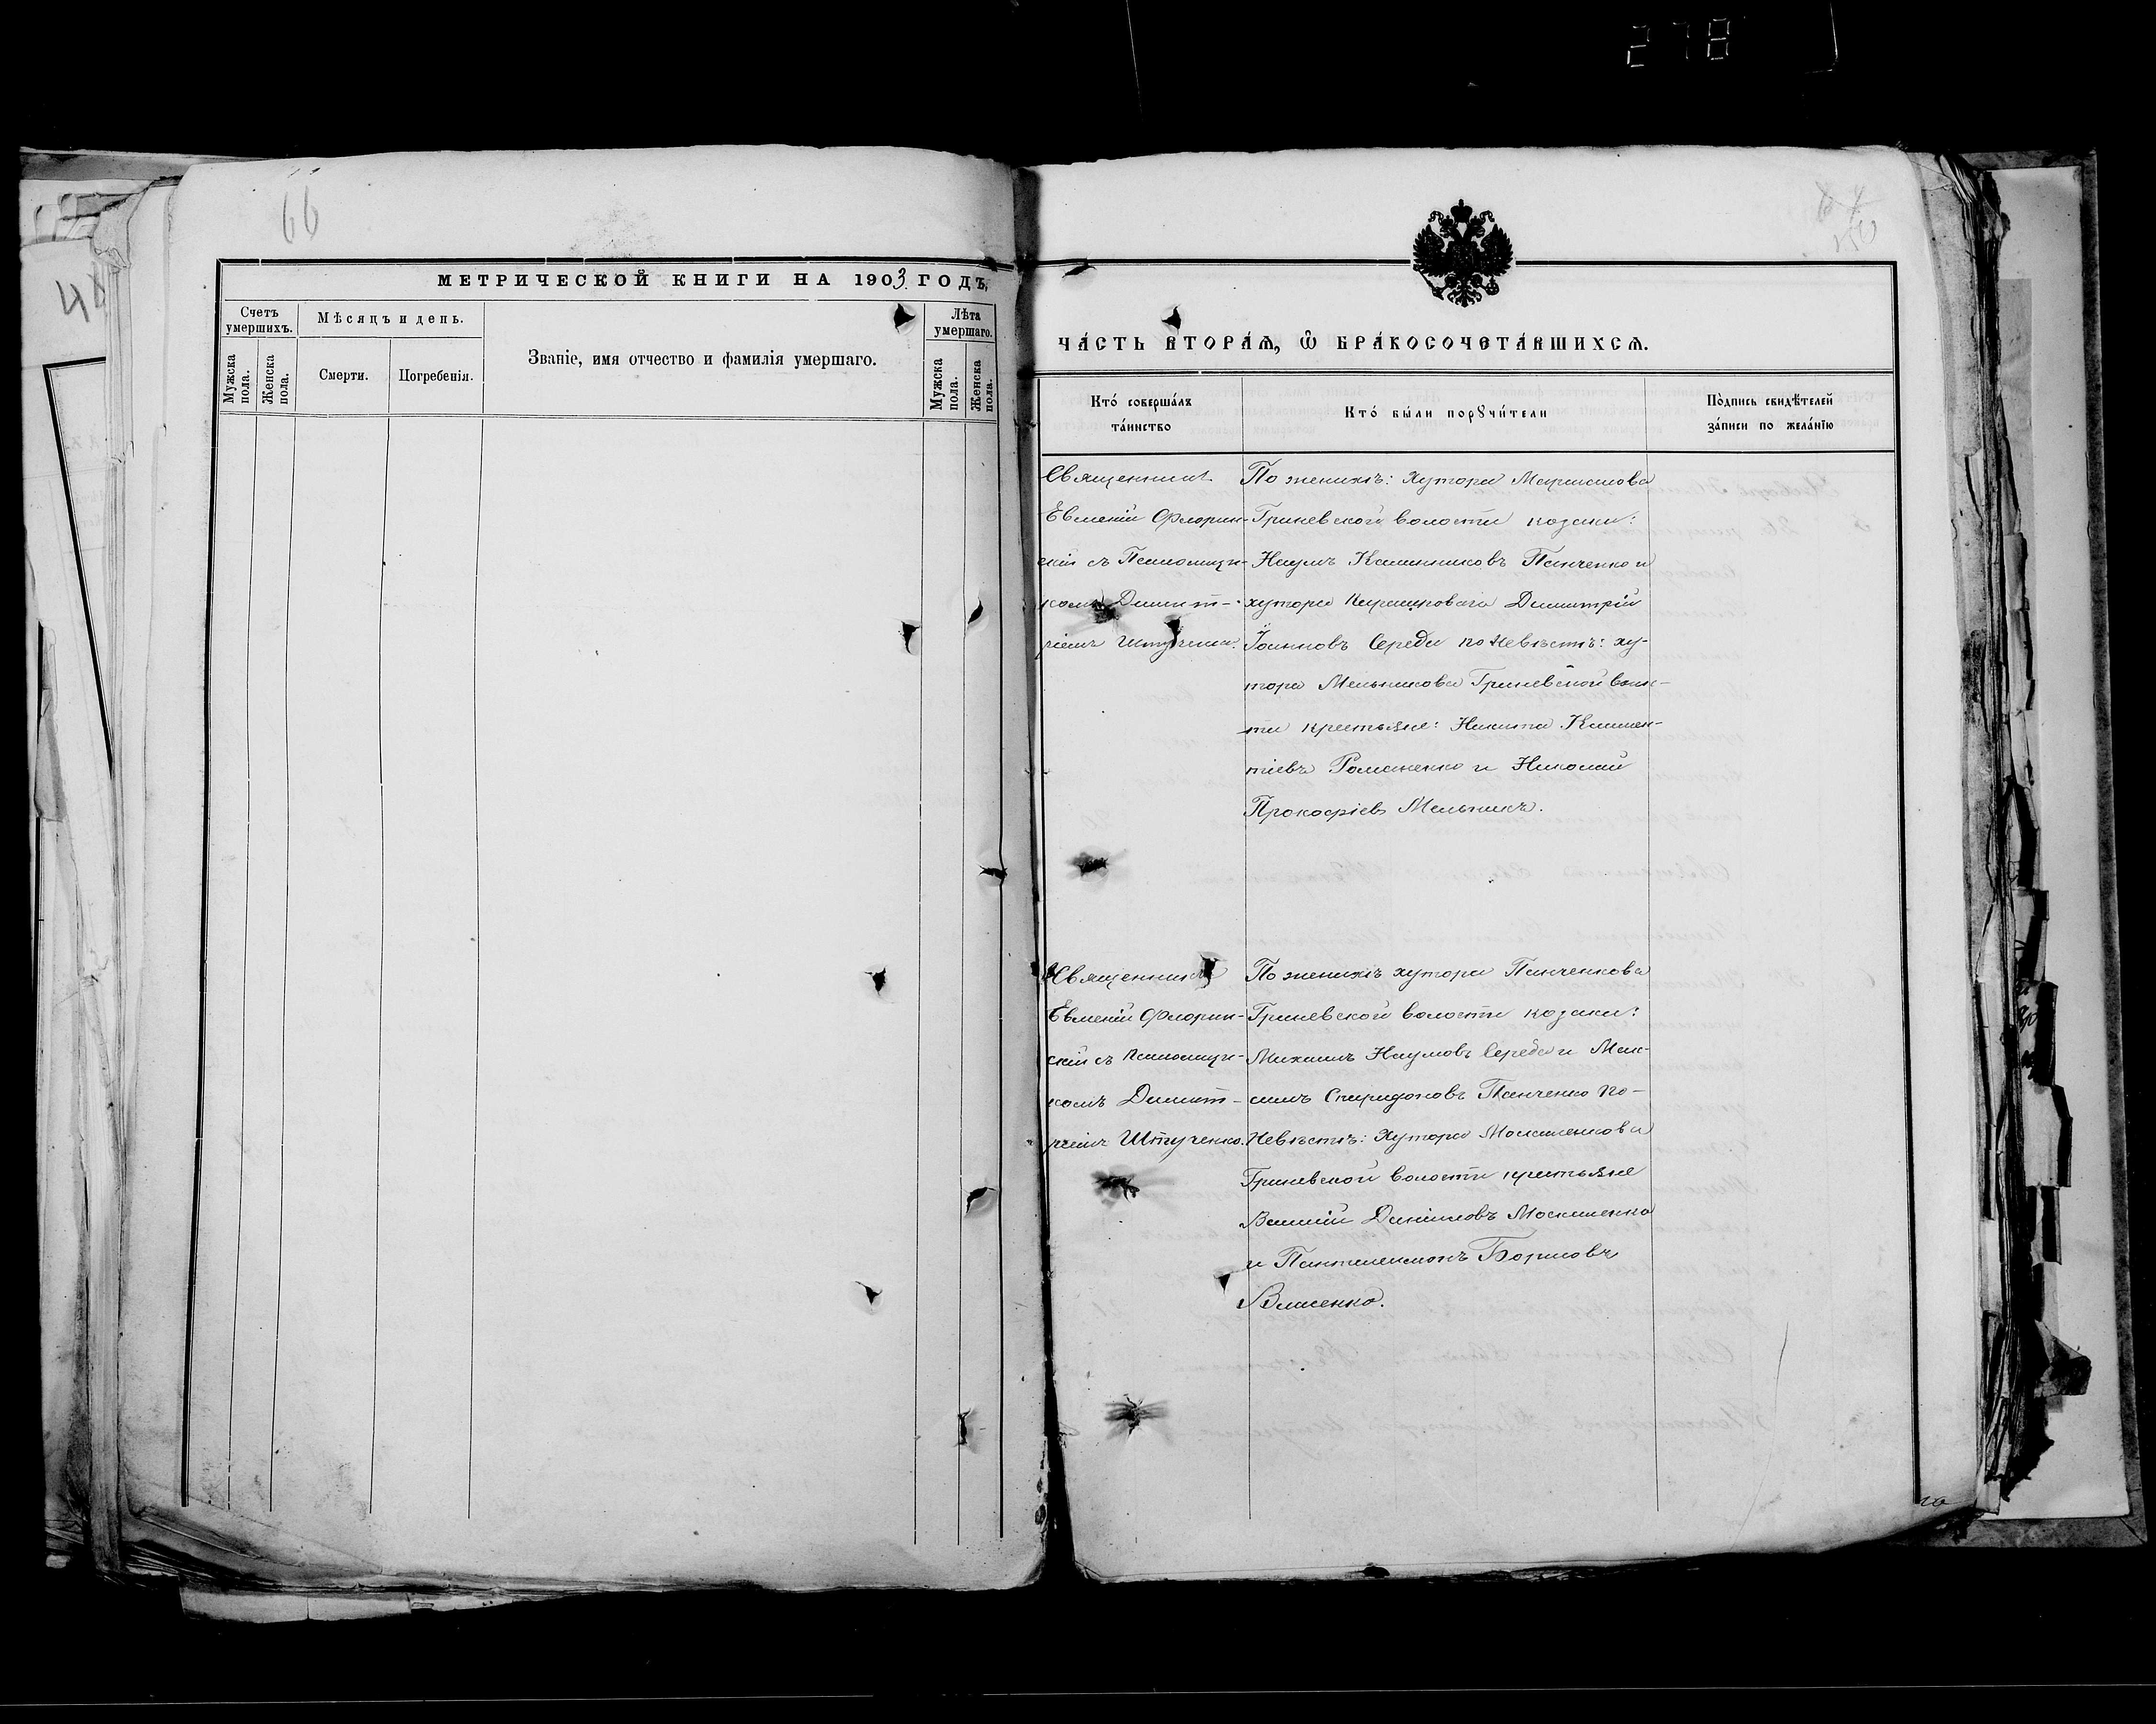 278
66
МЕТРИЧЕСКОЙ КНИГИ НА 1903 ГОДЪ,
Счетъ умершихъ.
Мѣсяцъ и день.
Званіе, имя отчество и фамилія умершаго.
Лѣта умершаго.
Мужска пола.
Женска пола.
Смерти.
Погребенія.
Мужска пола.
Женска пола.
ЧА́СТЬ ВТОРА́Ѧ, Ѽ БРА́КОСОЧЕТА́ВШИХСѦ.
Кто́ соверша́лъ та́инство
Кто́ бы́ли порꙋчи́тели
По́дпись свидѣ́телей за́писи по жела́нію
Священникъ
Евменій Флорин-
скій съ Псаломщи-
комъ Димит-
ріемъ Штученко.
По женихѣ: Хутора
Гриневской волости козаки:
Наумъ Калинниковъ Панченко и
хутора Димитрій
Іоанновъ Середа по невѣстѣ: ху-
тора Мельникова Гриневской волос-
ти крестьяне: Никита Климен-
тіевъ Романенко и Николай
Прокофіевъ Мельникъ.
Священникъ
Евменій Флорин-
скій съ псаломщи-
комъ Димит-
ріемъ Штученко.
По женихѣ хутора Панченкова
Гриневской волости козаки:
Михаилъ Наумовъ Середа и Мак-
симъ Спиридоновъ Панченко по-
невѣстѣ: Хутора Москаленкова
Гриневской волости крестьяне
Данииловъ Москаленко
и Пантелеимонъ Борисовъ
Власенко.